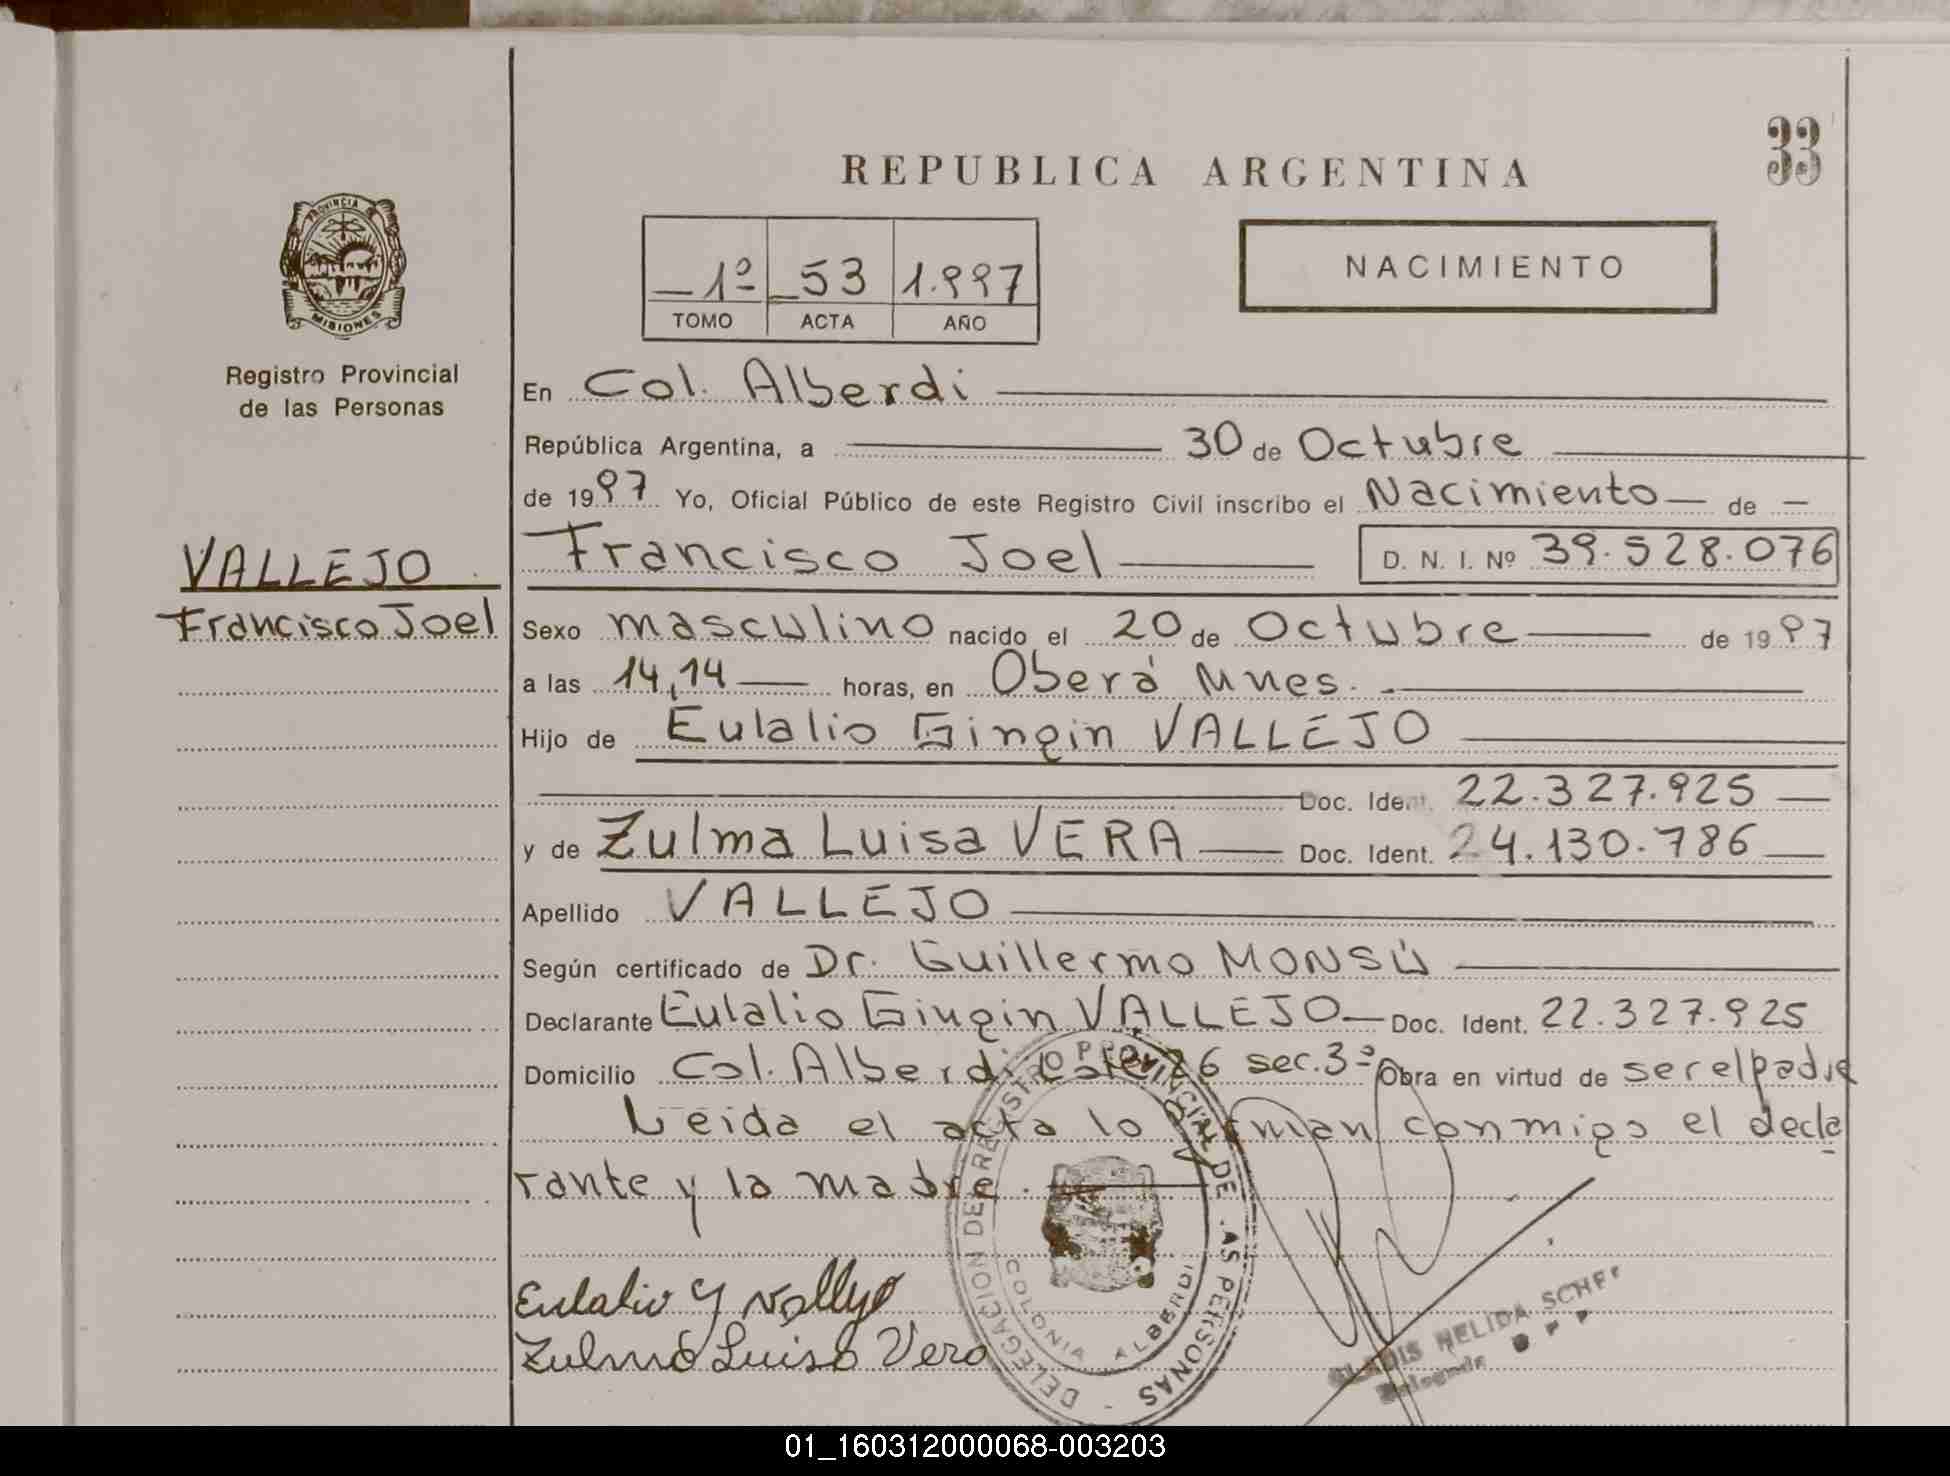 33
REPUBLICA ARGENTINA
PROVINCIA DE
MISIONES
Registro Provincial
de las Personas
1º 53 1.997
TOMO ACTA AÑO
NACIMIENTO
En Col. Alberdi
República Argentina, a 30 de Octubre
de 1997 Yo, Oficial Público de este Registro Civil inscribo el Nacimiento de
VALLEJO
Francisco Joel
Francisco Joel D. N. I. Nº 39.528.076
Sexo masculino nacido el 20 de Octubre de 1997
a las 14,14 horas, en Oberá Mnes.
Hijo de Eulalio Gingin VALLEJO
Doc. Ident. 22.327.925
y de Zulma Luisa VERA Doc. Ident. 24.130.786
Apellido VALLEJO
Según certificado de Dr. Guillermo MONSÚ
Declarante Eulalio Gingin VALLEJO Doc. Ident. 22.327.925
Domicilio Col. Alberdi Lote 26 sec. 3ª Obra en virtud de ser el padre
Leida el acta lo firman conmigo el decla
rante y la madre.
Eulalio G Vallejo
Zulma Luisa Vera
DELEGACION DE REGISTRO PROVINCIAL DE LAS PERSONAS
COLONIA ALBERDI
GLADIS NELIDA
Delegada
01_160312000068-003203